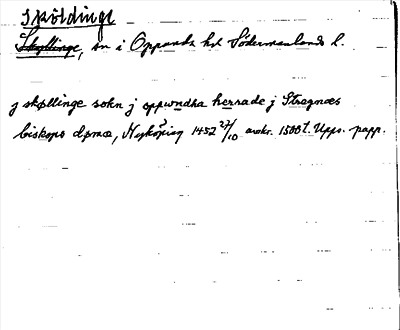 Sköldinge
Skyllinge, sn i Oppunda hd Södermanlands l.
j skøllinge sokn j oppwndha herrade j Strægnæs
biskops dømæ, Nyköping 1452 27/10 avskr. 1500 t. Upps. papp.